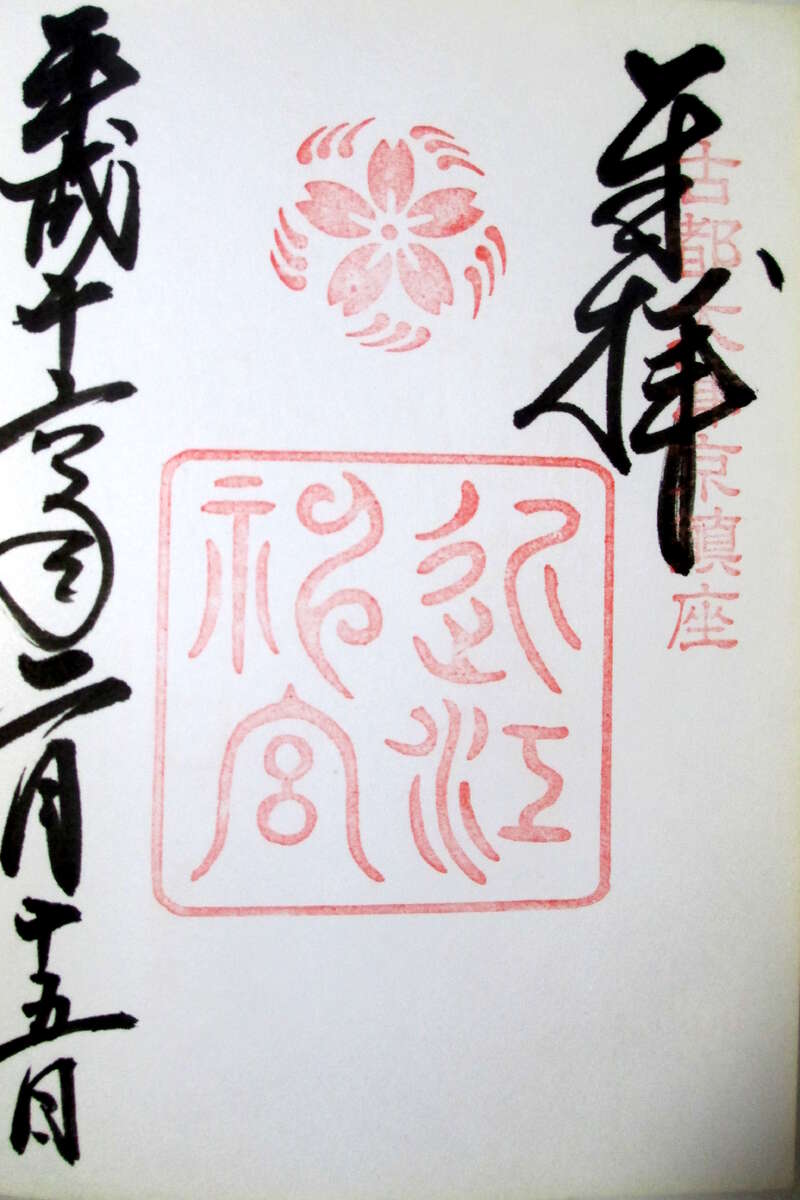 奉拝
古都大津京鎮座
近江
神宮
平成十六年二月十五日